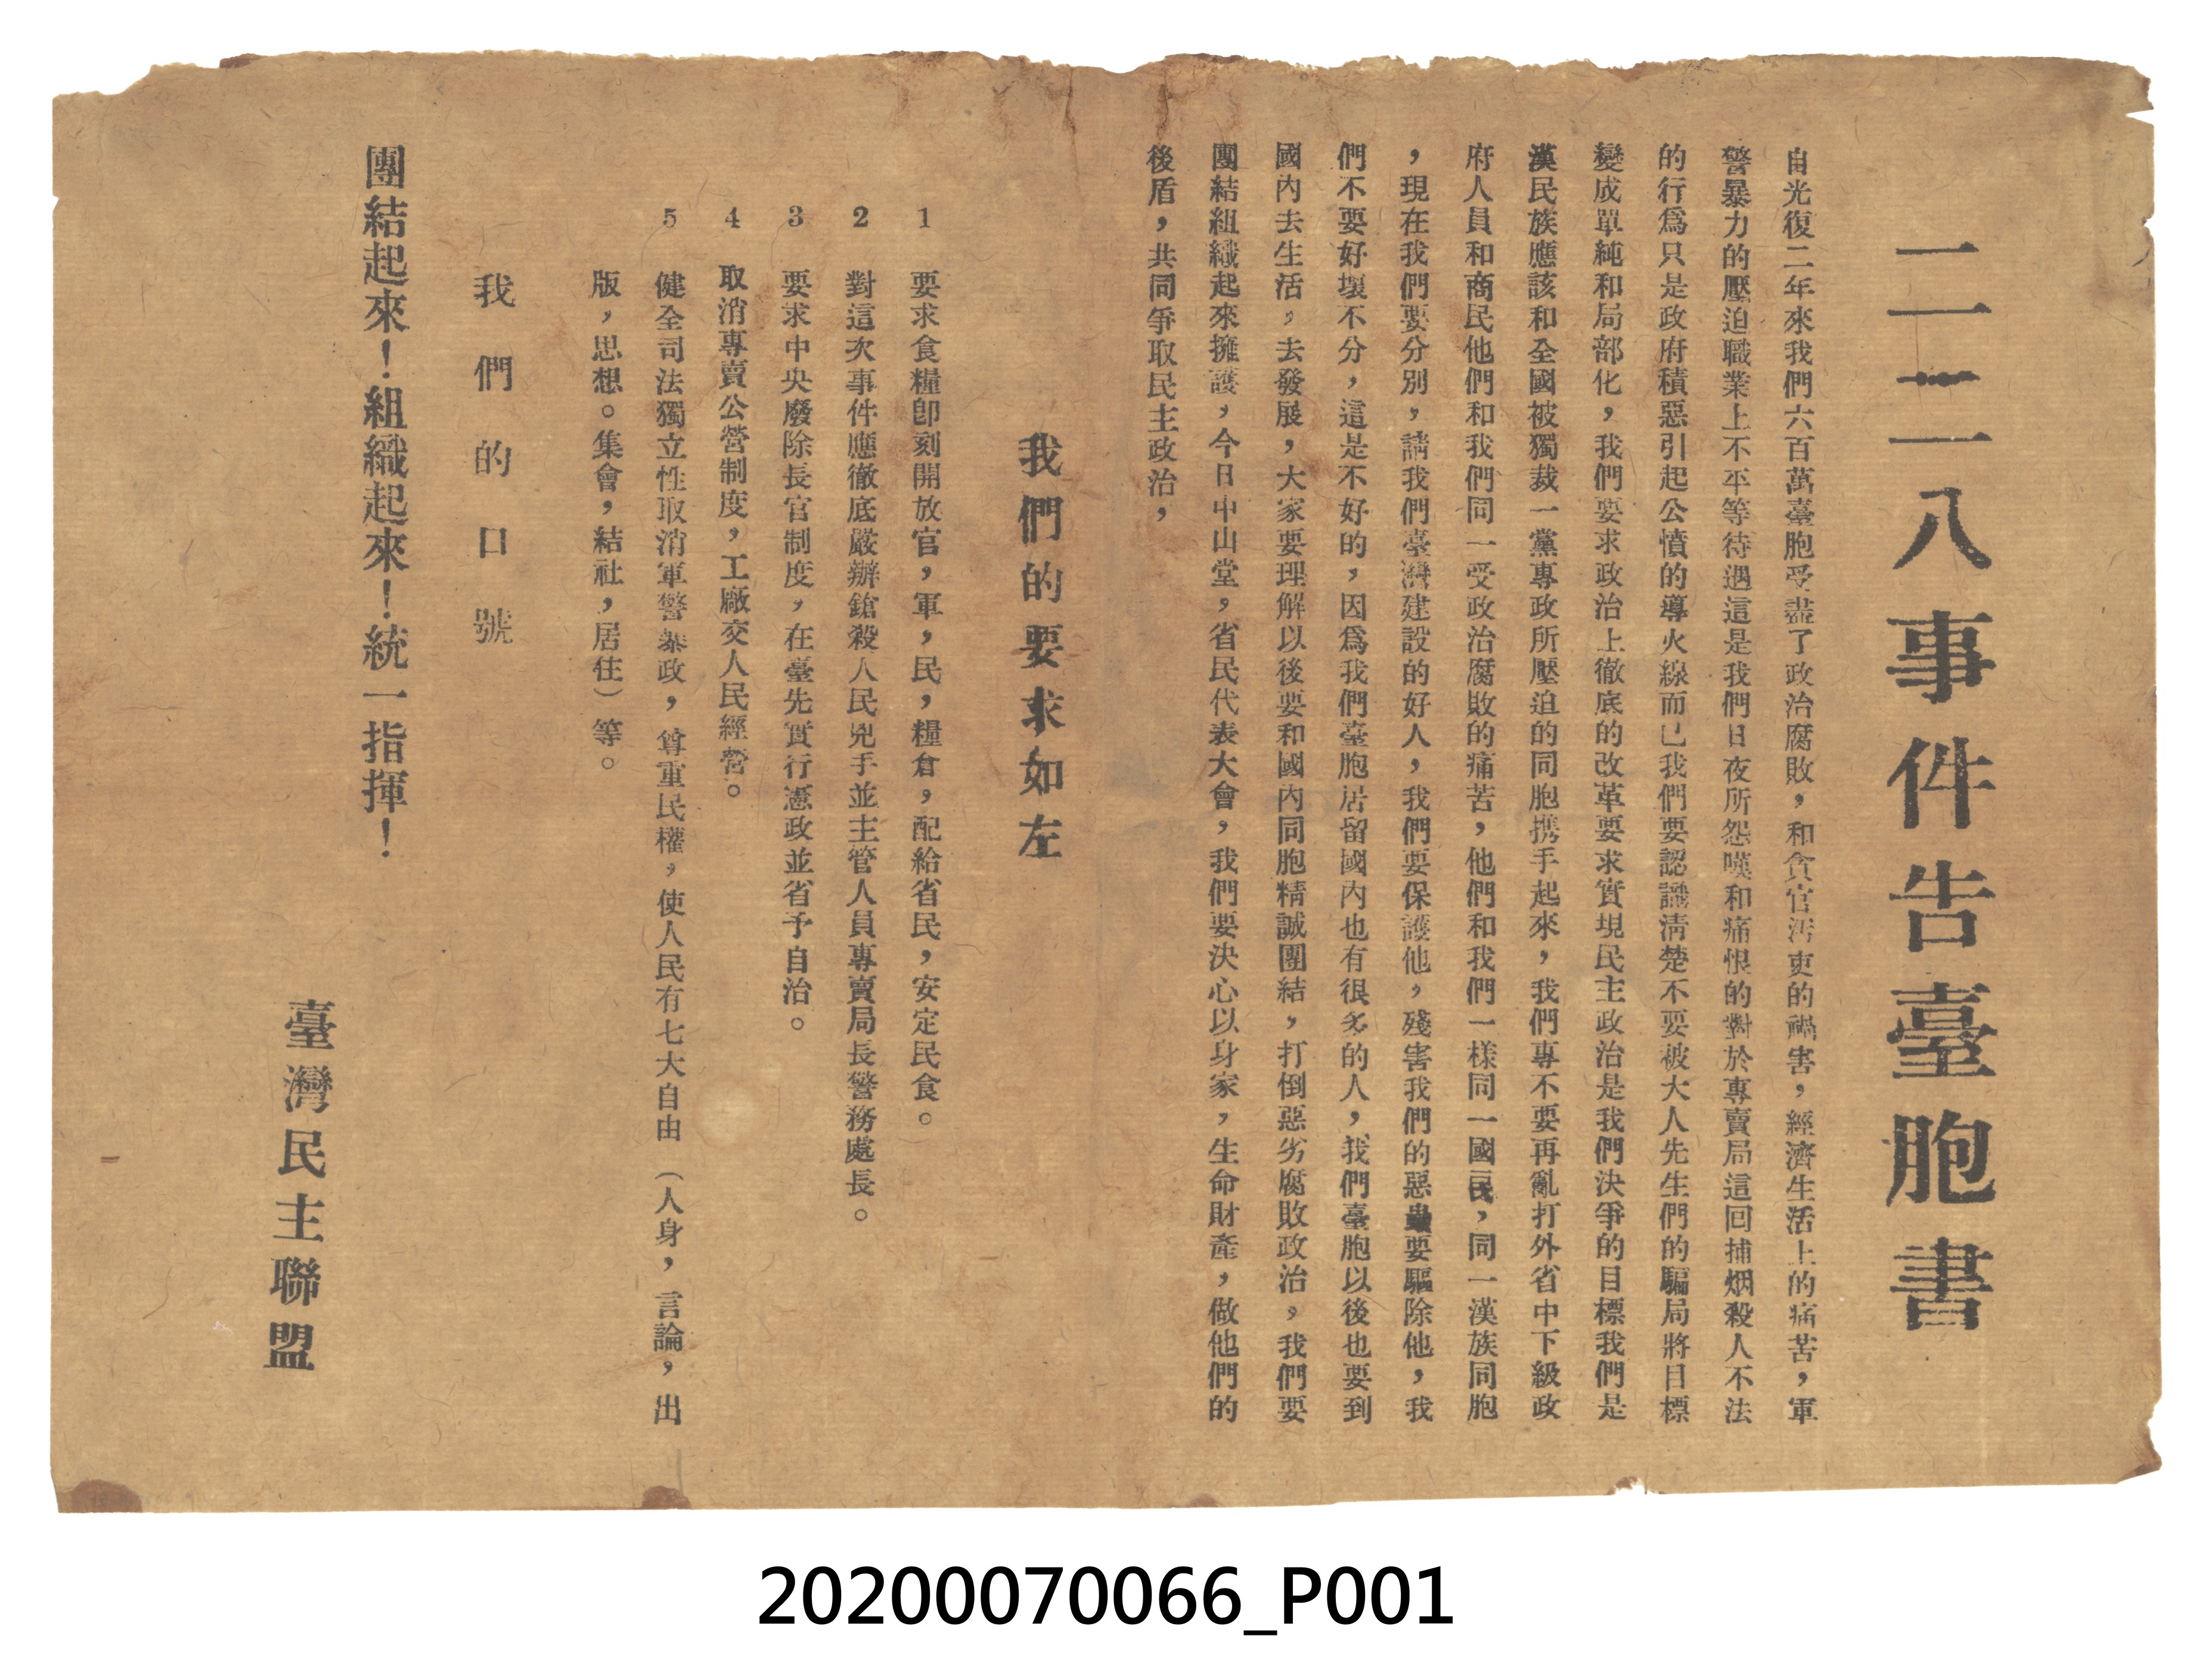 二二八事件告臺胞書
自光復二年來我們六百萬臺胞受盡了政治腐敗，和貪官污吏的禍害，經濟生活上的痛苦，軍
警暴力的壓迫職業上不平等待遇這是我們日夜所怨嘆和痛恨的對於專賣局這回捕烟殺人不法
的行爲只是政府積惡引起公憤的導火線而已我們要認識清楚不要被大人先生們的騙局將目標
變成單純和局部化，我們要求政治上徹底的改革要求實現民主政治是我們決爭的目標我們是
漢民族應該和全國被獨裁一黨專政所壓迫的同胞携手起來，我們專不要再亂打外省中下級政
府人員和商民他們和我們同一受政治腐敗的痛苦，他們和我們一樣同一國民，同一漢族同胞
，現在我們要分別，請我們臺灣建設的好人，我們要保護他，殘害我們的惡蟲要驅除他，我
們不要好壞不分，這是不好的，因爲我們臺胞居留國內也有很多的人，我們臺胞以後也要到
國內去生活，去發展，大家要理解以後要和國內同胞精誠團結，打倒惡劣腐敗政治，我們要
團結組織起來擁護，今日中山堂，省民代表大會，我們要決心以身家，生命財產，做他們的
後盾，共同爭取民主政治，
我們的要求如左
1 要求食糧卽刻開放官，軍，民，糧倉，配給省民，安定民食。
2 對這次事件應徹底嚴辦鎗殺人民兇手並主管人員專賣局長警務處長。
3 要求中央廢除長官制度，在臺先實行憲政並省予自治。
4 取消專賣公營制度，工廠交人民經營。
5 健全司法獨立性取消軍警暴政，尊重民權，使人民有七大自由（人身，言論，出
版，思想。集會，結社，居住）等。
我們的口號
團結起來！組織起來！統一指揮！
臺灣民主聯盟
20200070066_P001